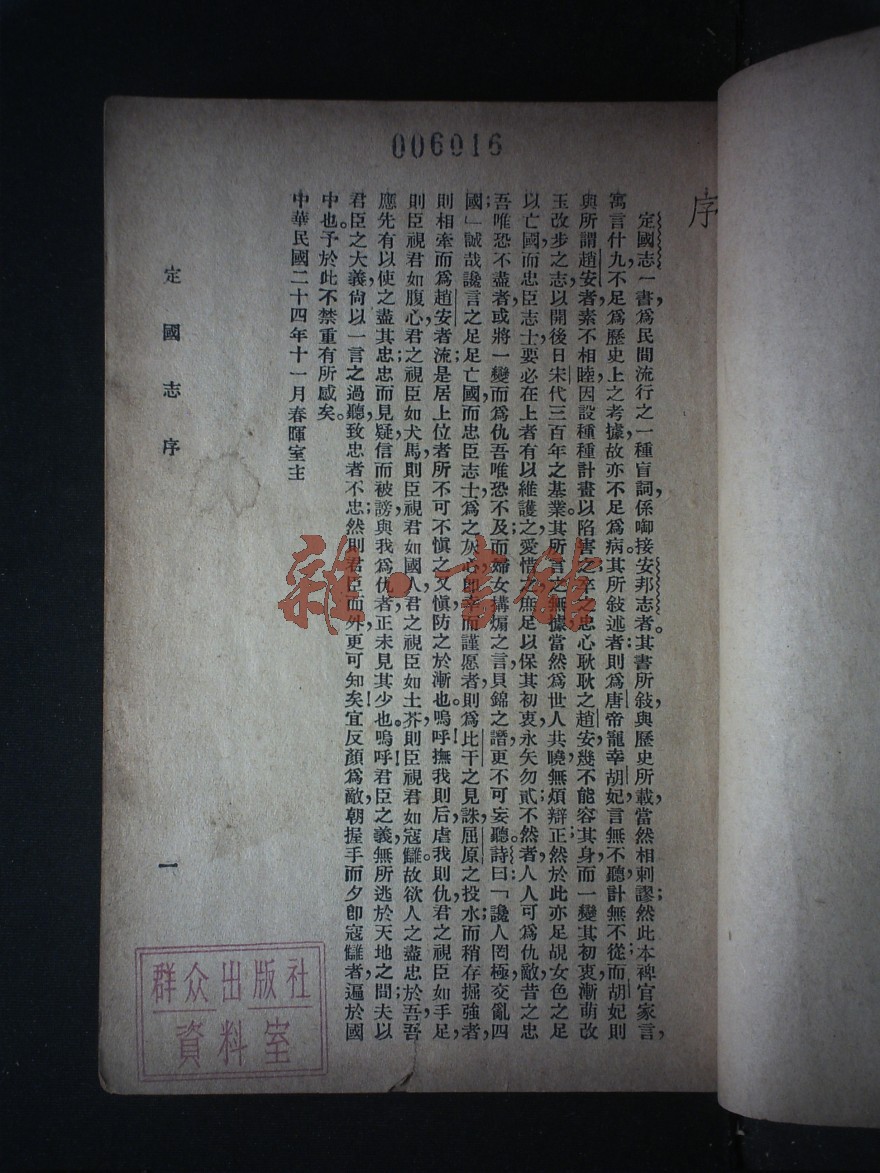 006016
序
定國志一書，為民間流行之一種盲詞，係啣接安邦志者。其書所敍，與歷史所載，當然相刺謬；然此本稗官家言，
寓言什九，不足為歷史上之考據，故亦不足為病。其所敍述者，則為唐帝寵幸胡妃，言無不聽，計無不從；而胡妃則
與所謂趙安者，素不相睦，因設種種計畫以陷害之；卒之忠心耿耿之趙安，幾不能容其身，而一變其初衷，漸萌改
玉改步之志，以開後日宋代三百年之基業。其所言之無據，當然為世人共曉，無煩辯正；然於此亦足覘女色之足
以亡國，而忠臣志士，要必在上者有以維護之，愛惜之，庶足以保其初衷，永矢勿貳；不然者，人人可為仇敵，昔之忠
吾唯恐不盡者，或將一變而為仇吾唯恐不及；而婦女搆煽之言，貝錦之譖，更不可妄聽。詩曰：「讒人罔極，交亂四
國」誠哉讒言之足足亡國，而忠臣志士，為之灰心，即幸而謹愿者，則為比干之見誅，屈原之投水；而稍存掘強者，
則相牽而為趙安者流；是居上位者所不可不慎之又慎，防之於漸也。嗚呼！撫我則后，虐我則仇，君之視臣如手足，
則臣視君如腹心；君之視臣如犬馬，則臣視君如國人；君之視臣如土芥，則臣視君如寇讎。故欲人之盡忠於吾，吾
應先有以使之盡其忠；忠而見疑，信而被謗，與我為仇者，正未見其少也。嗚呼！君臣之義，無所逃於天地之間；夫以
君臣之大義，尙以一言之過聽，致忠者不忠；然則君臣而外，更可知矣！宜反顏為敵，朝握手而夕即寇讎者，遍於國
中也。予於此不禁重有所感矣。
中華民國二十四年十一月春暉室主
定國志序
一
群众出版社
資料室
雜·書館